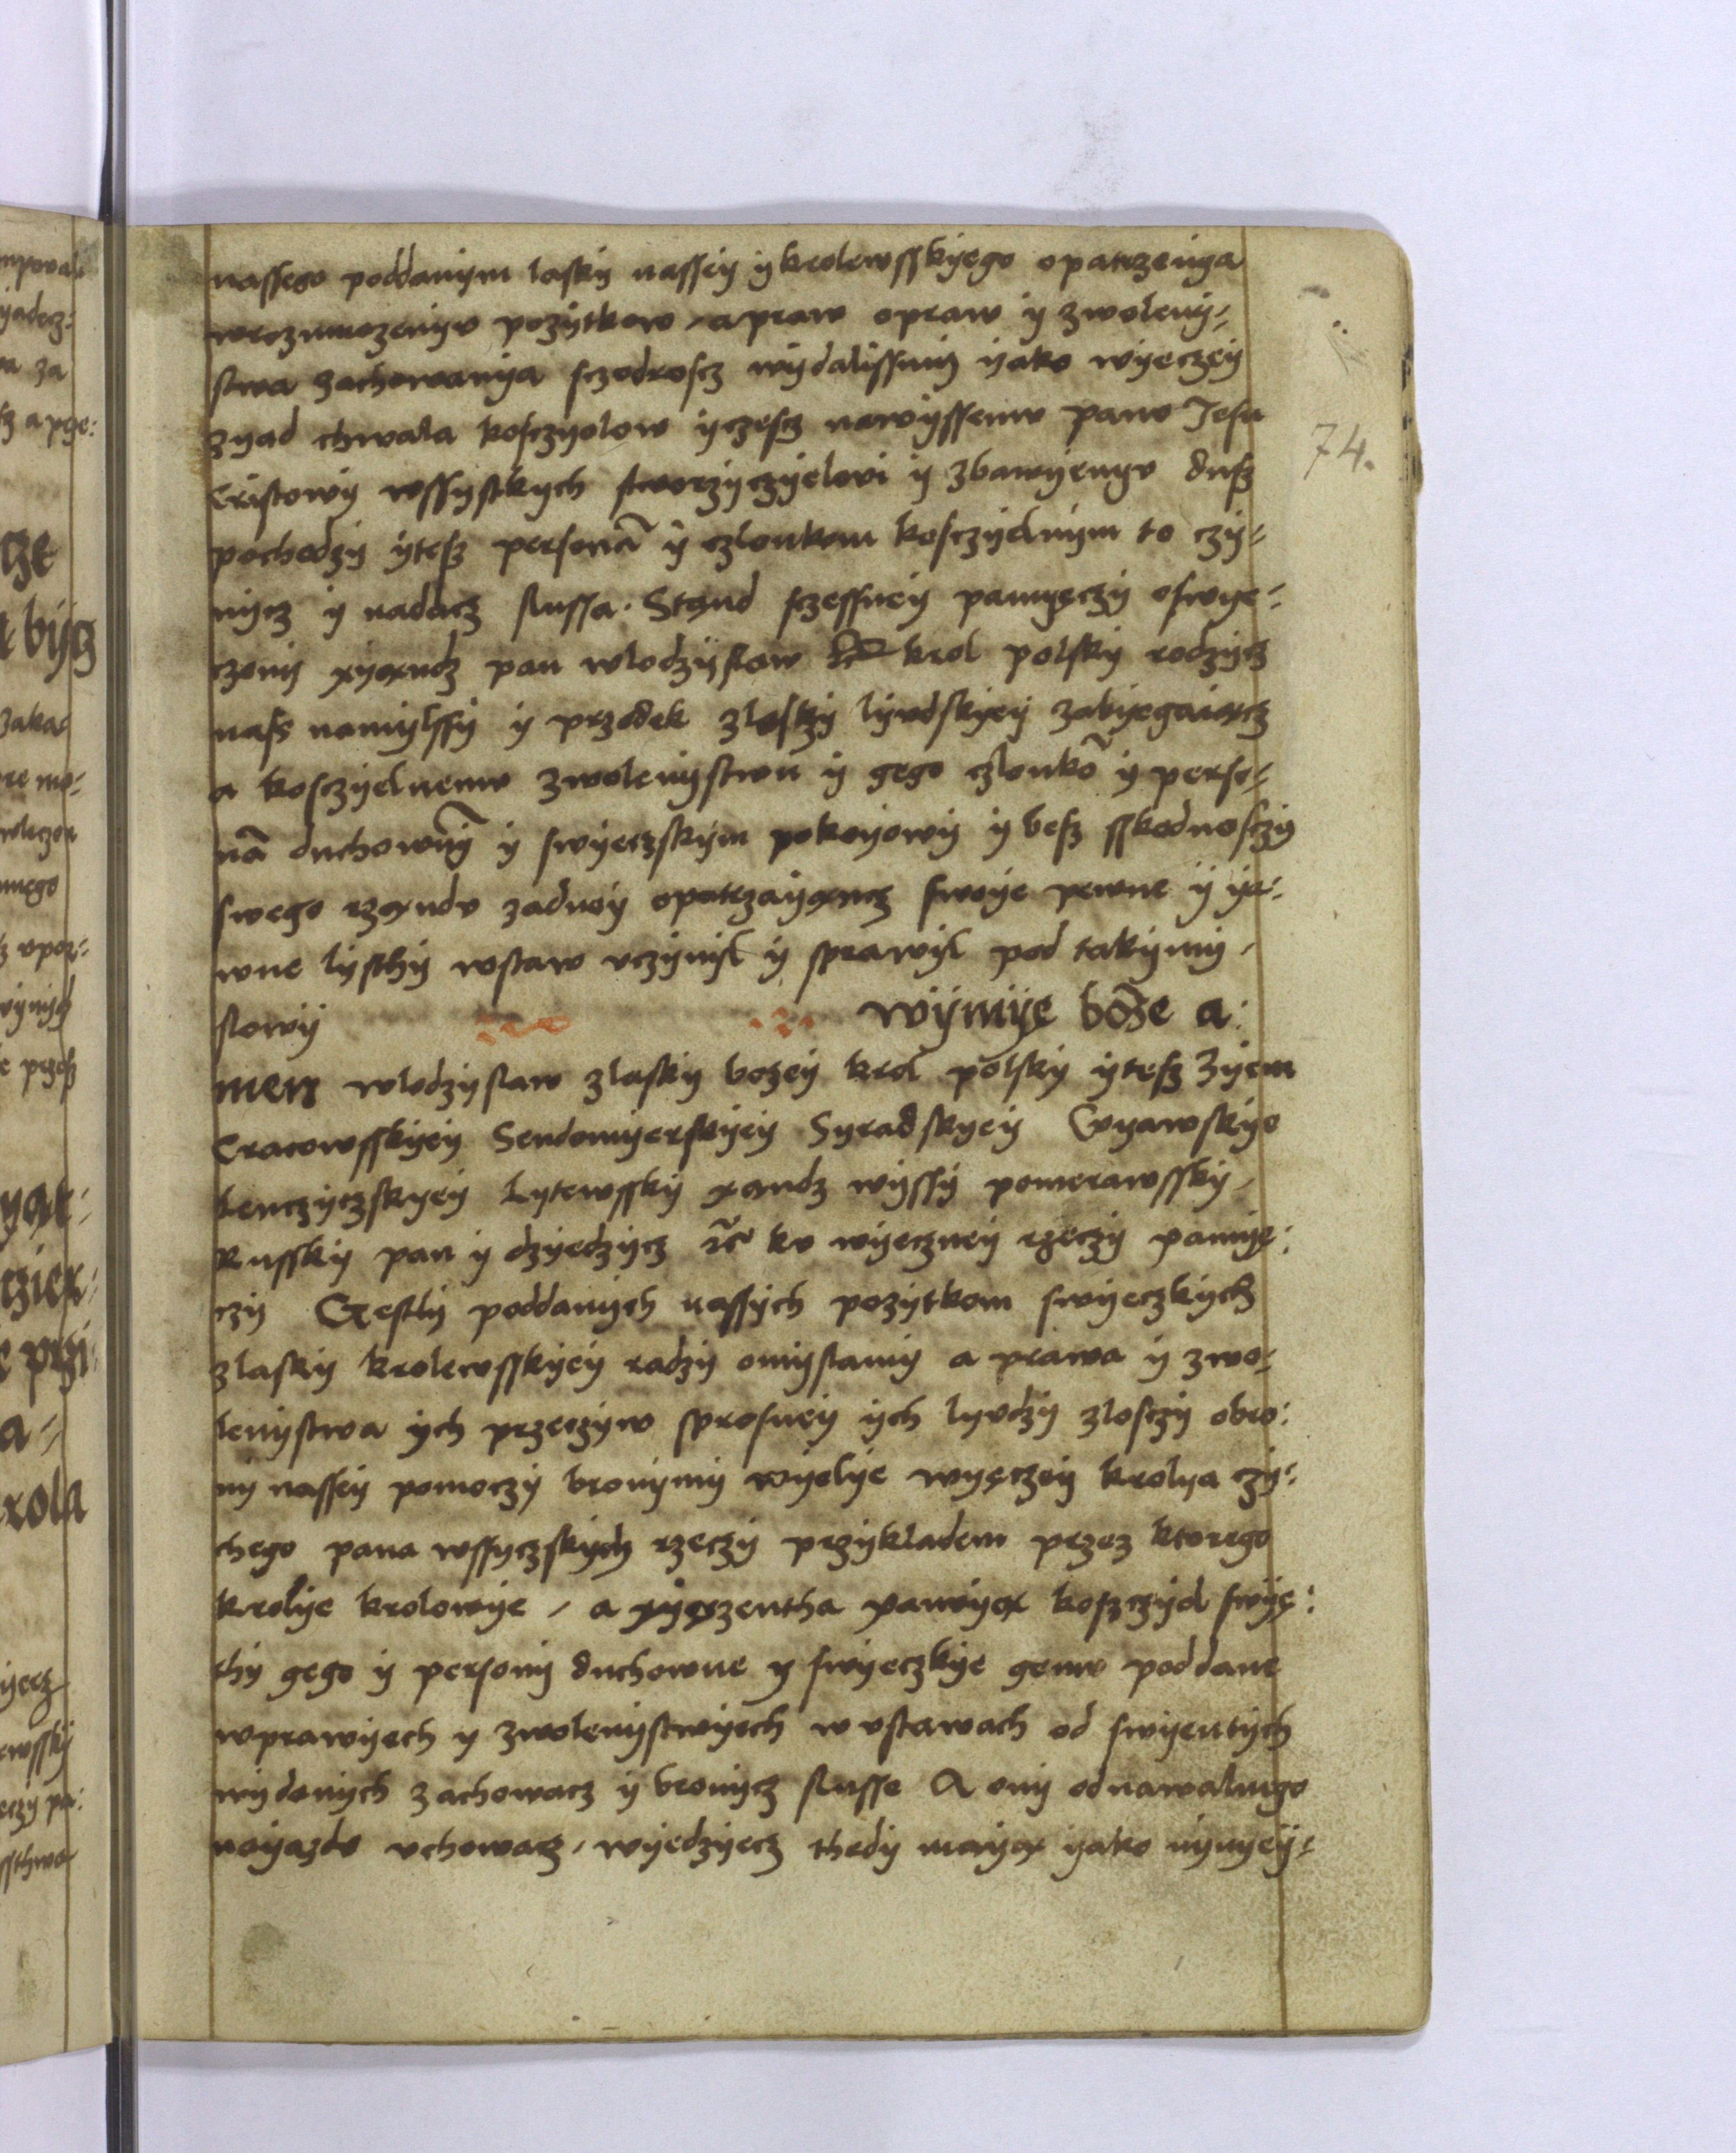 nassego poddanym lasky nassey y krolewsskyego opatrzenya
wrozmnozenyv pozytkow / a praw opraw y zwoleny-
stwa zachowanya sczodrosc wydalissmy yako wyeczey
zyad chwala kosczyolow y czescz nawyssemv panv Jesu
Cristowy wssystkych stworzyczyelovi y zbawyenyv dusz
pochodzy ytesz personã y czlonkom kosczyelnym to czy-
nycz y nadacz slussa. Stąnd sczessney pamyęczy oswye-
czony xyąndz pan wlodzyslaw etc̃ krol polsky rodzycz
nass namylssy y przodek zlosczy lyvdskyey zabyegaiącz
a kosczyelnemv zwolenystwu y gego czlonkõ y perso-
nã duchownỹ y swyeczskym pokoyowy y besz sskodnosczy
swego rządv zadney opatrzayącz swoye pewne y ya-
wne lysthy wstaw vczynyl y sprawyl pod takymy /
slowy
wymyę boze a:
men wlodzyslaw zlasky bozey krol polsky ytesz zyem
Cracowsskyey Sendomyerskyey Syradskyey Cvyawskye
lenczyczskyey Lytewssky xandz wyssy pomerawssky /
Russky pan y dzyedzycz etc̃ kv wyeczney rzeczy pamyę:
czy Gestly poddanych nassych pozytkom swyeczkych
zlasky krolewsskyey radzy omyslamy a prawa y zwo-
lenystwa ych przeczyw sprosney ych lyvdzy zlosczy obro:
ny nassey pomoczy bronymy wyelye wyęczey krolya czy:
chego pana wssyczskych rzeczy przykladem przez ktorego
krolye krolowye / a xyęszentha panvyą koszczyol swyę:
thy gego y persony duchowne y swyeczkye gemv poddane
wprawyech y zwolenystwyech w vstawach od swyentych
wydanych zachowacz y bronycz slusse A ony od nawalnego
nayazdv vchowacz / wyedzyecz thedy mayą yako nynyey-
74.